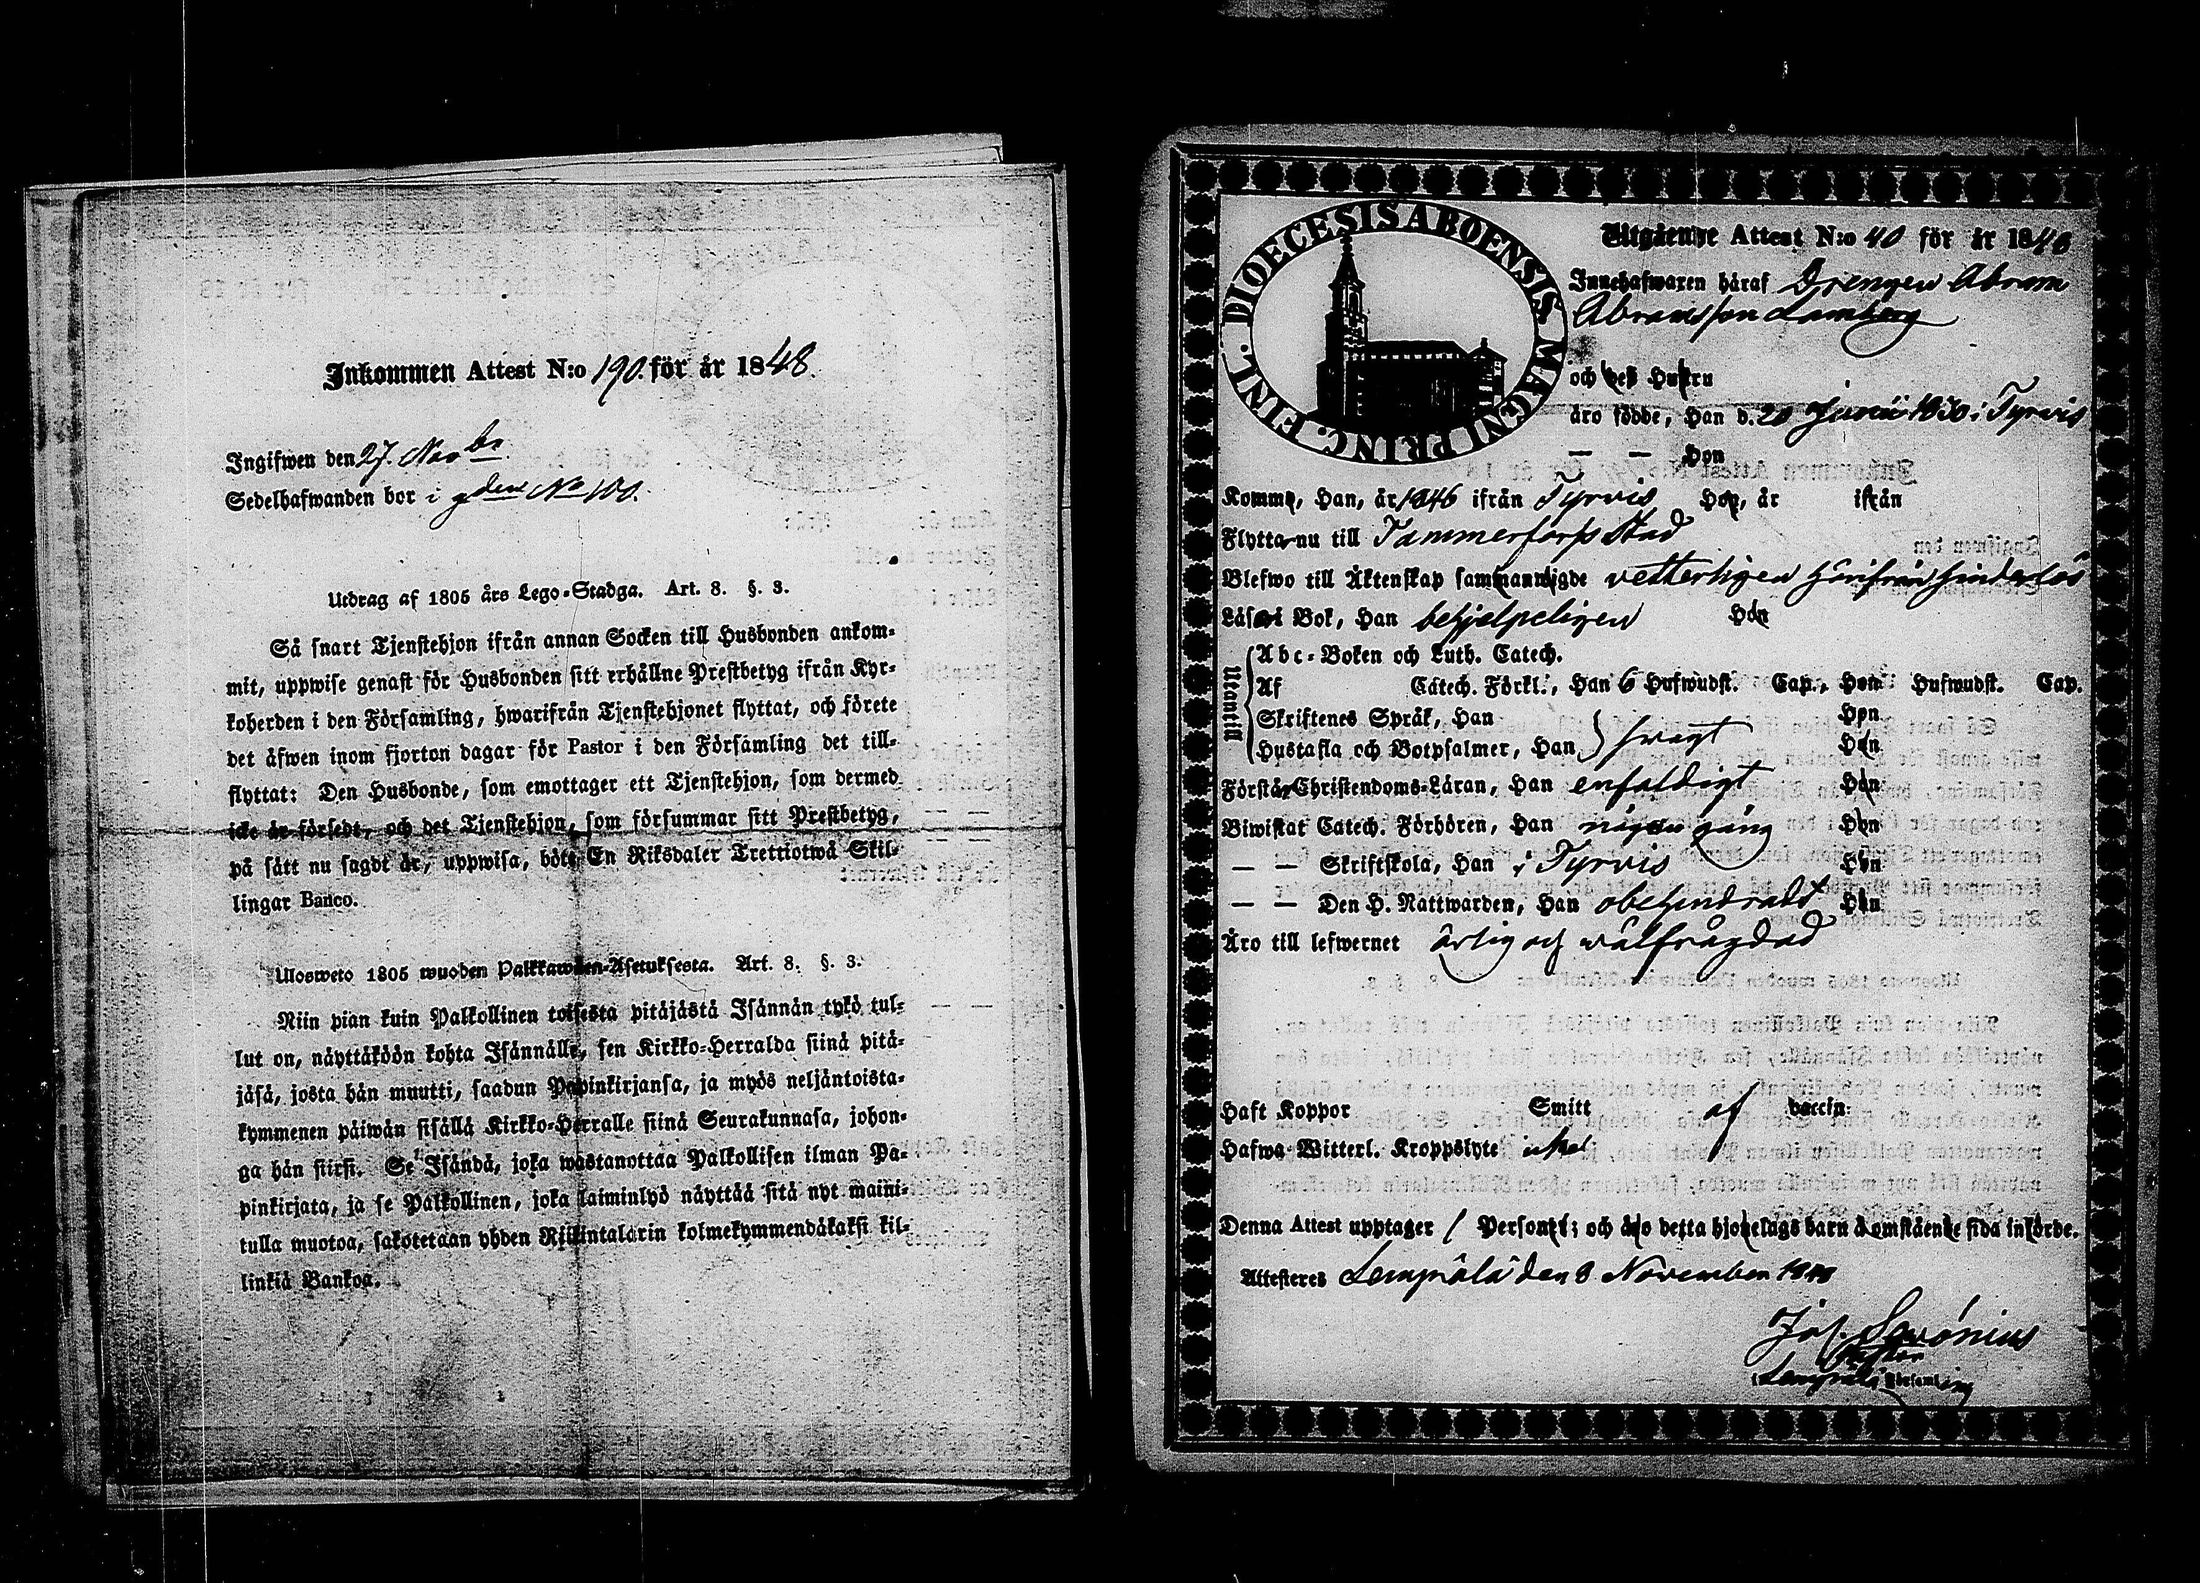 Inkommen Attest N:o 190. för år 1848.
Ingifwen den 27. Novbr
Sedelhafwanden bor i gden No 100.
Utdrag af 1805 års Lego-Stadga. Art. 8. §. 3.
Så snart Tjenstehjon ifrån annan Socken till Husbonden ankom-
mit, uppwise genast för Husbonden sitt erhållne Prestbetyg ifrån Kyr-
koherden i den Församling, hwarifrån Tjenstehjonet flyttat, och förete
det äfwen inom fjorton dagar för Pastor i den Församling det till-
flyttat: Den Husbonde, som emottager ett Tjenstehjon, som dermed
icke är försedt, och det Tjenstehjon, som försummar sitt Prestbetyg,
på sätt nu sagdt är, uppwisa, böte En Riksdaler Trettiotwå Skil-
lingar Banco.
Ulosweto 1805 wuoden Palkkawäen-Asetuksesta. Art. 8. §. 3.
Niin pian kuin Palkollinen toisesta pitäjästä Isännän tykö tul-
lut on, näyttäköön kohta Isännälle, sen Kirkko-Herralda siinä pitä-
jäsä, josta hän muutti, saadun Papinkirjansa, ja myös neljäntoista-
kymmenen päiwän sisällä Kirkko-Herralle siinä Seurakunnasa, johon-
ga hän siirsi. Se Isändä, joka wastanottaa Palkollisen ilman Pa-
pinkirjata, ja se Palkollinen, joka laiminlyö näyttää sitä nyt maini-
tulla muotoa, sakotetaan yhden Riikintalarin kolmekymmendäkaksi kil-
linkiä Bankoa.
DIOECESIS ABOENSIS MAGNI PRINC. FINL.
Utgående Attest N:o 40 för år 1848
Innehafwaren häraf Drengen Abram
Abramsson Lamberg
och des Hustru
äro födde, Han d. 20 Junii 1830 i Tyrvis
— — Hon
Komme, Han, år 1846 ifrån Tyrvis Hon, år ifrån
Flytta nu till Tammerfors stad
Blefwo till Äktenskap sammanwigde vetterligen härifrån hinderlös
Läsa i Bok, Han behjelpeligen Hon
Utoneill
Abc-Boken och Luth. Catech.
Af Catech. Förkl., Han 6 Hufwudst. Cap., Hon Hufwudst. Cap.
Skriftenes Språk, Han Hon
Hustafla och Botpsalmer, Han } svagt Hon
Förstår Christendoms-Läran, Han enfaldigt Hon
Biwistat Catech. Förhören, Han någon gång Hon
— — Skriftskola, Han i Tyrvis Hon
— — Den H. Nattwarden, Han obehindradt Hon
Äro till lefwernet ärlig och välfrägdad
Haft Koppor Smitt af vaccin:
Hafwa Witterl. Kroppslyte intet
Denna Attest upptager 1 Person; och äro detta hjonelags barn å omstående sida införde.
Attesteres Lempälä den 8 November 1848
Jos. Servónius
Pastor
i Lempälä Församling